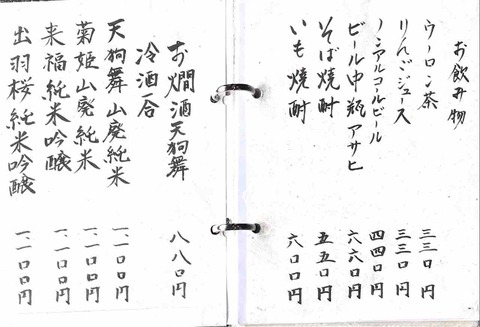 お飲み物
ウーロン茶 三三〇円
りんごジュース 三三〇円
ノンアルコールビール 四四〇円
ビール中瓶アサヒ 六六〇円
そば焼酎 五五〇円
いも焼酎 六〇〇円
お燗酒天狗舞 八八〇円
冷酒一合
天狗舞 山廃純米 一、一〇〇円
菊姫山廃純米 一、一〇〇円
来福純米吟醸 一、一〇〇円
出羽桜純米吟醸 一、一〇〇円